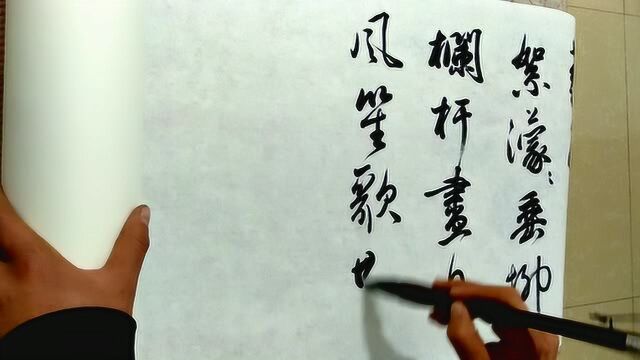 絮濛々垂柳
欄杆盡
風笙歌